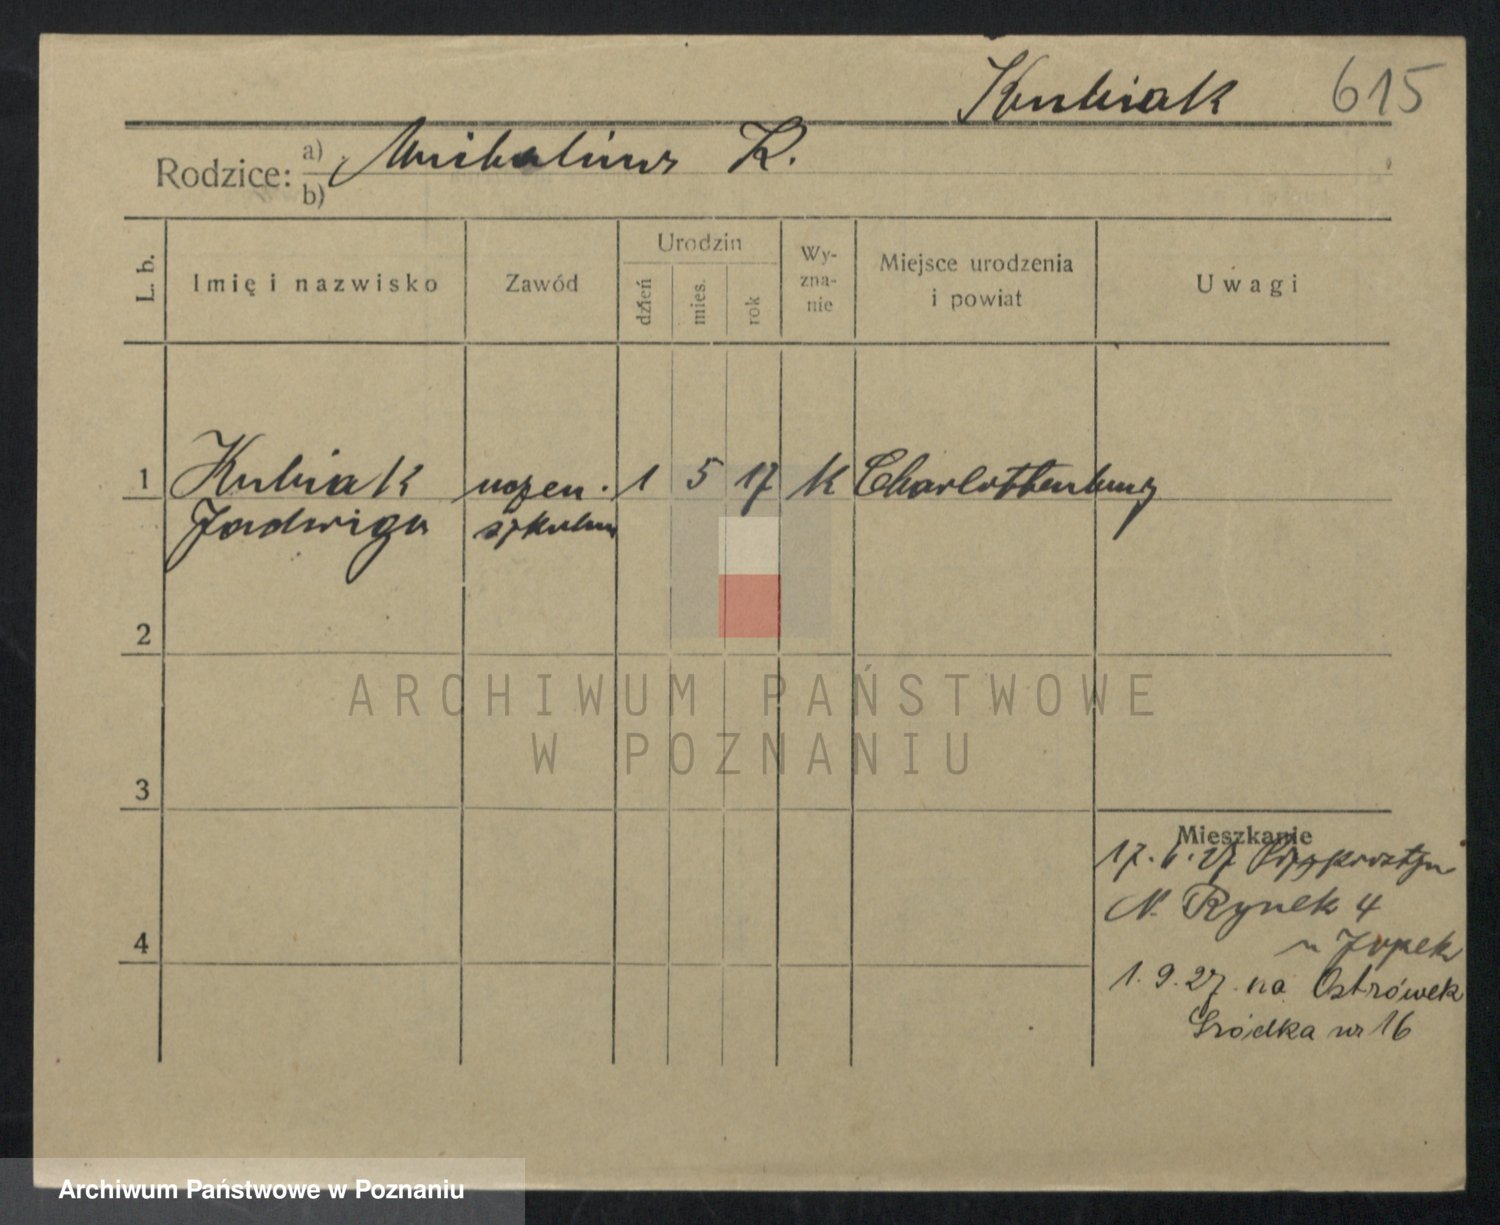 Kubiak 615
Rodzice: a) K.
b)
L. b. Imię i nazwisko Zawód Urodzin dzień mies. rok Wyznanie Miejsce urodzenia i powiat Uwagi
1 Kubiak uczen. 1 5 17 k Charlottenburg
Jadwiga szkolna
2
ARCHIWUM PAŃSTWOWE
W POZNANIU
3
Mieszkanie
17. 27
4 N. Rynek 4
u
1. 9. 27. na Ostrówek
Śródka nr 16
Archiwum Państwowe w Poznaniu